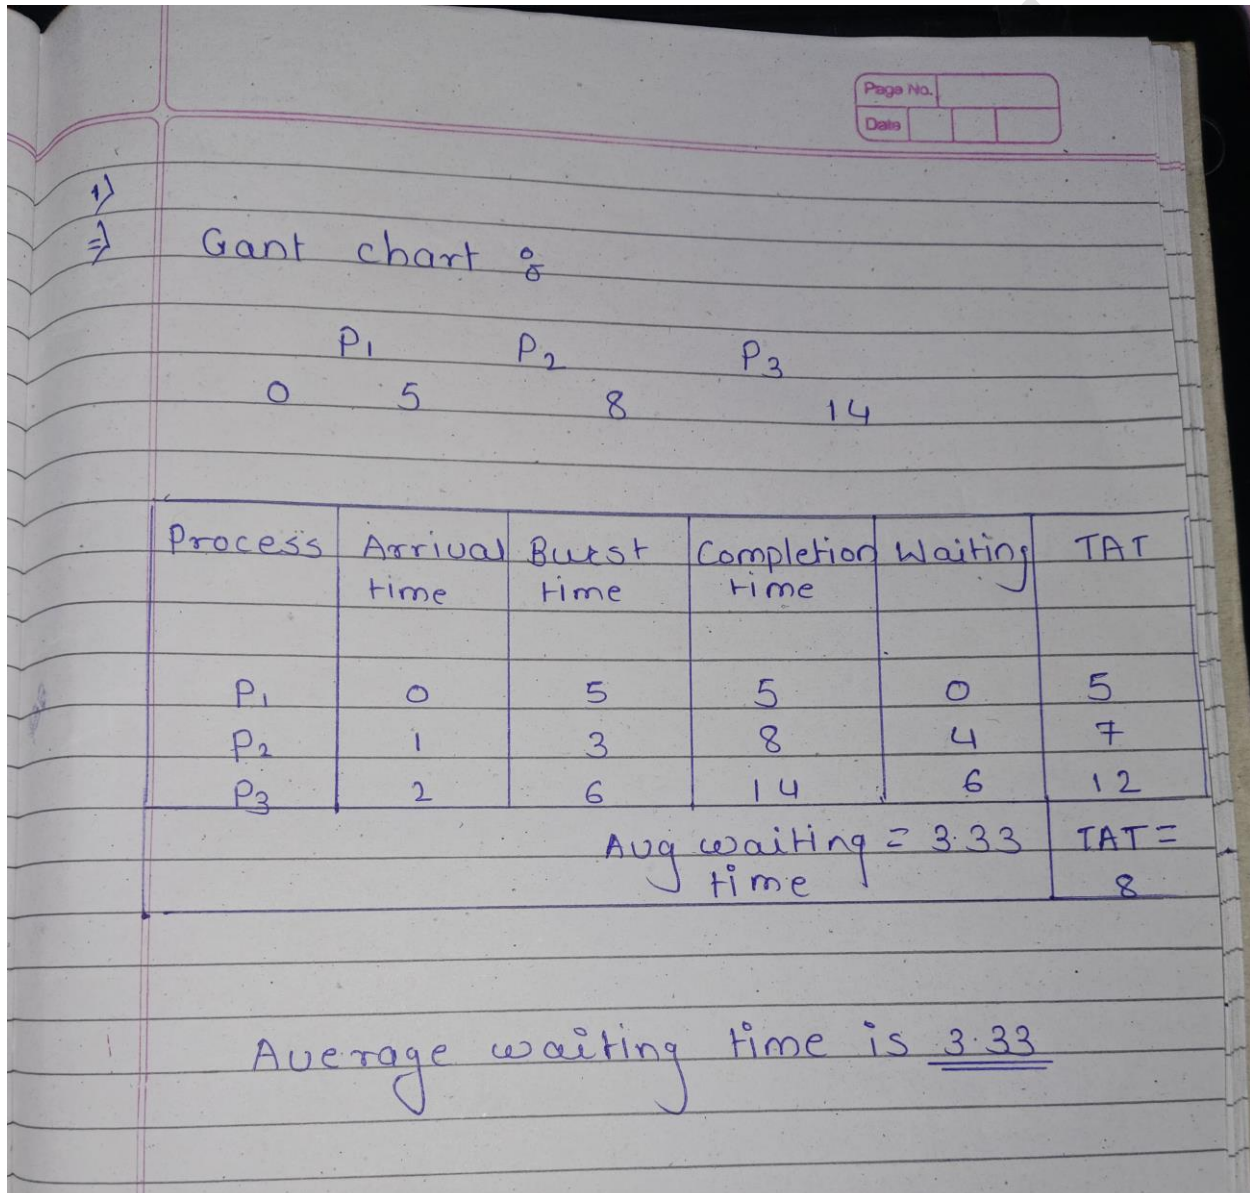 Page No.
Date
1)
=) Gant chart :
P1 P2 P3
0 5 8 14
Process Arrival time Burst time Completion time Waiting TAT
P1 0 5 5 0 5
P2 1 3 8 4 7
P3 2 6 14 6 12
Avg waiting time = 3.33 TAT = 8
Average waiting time is 3.33